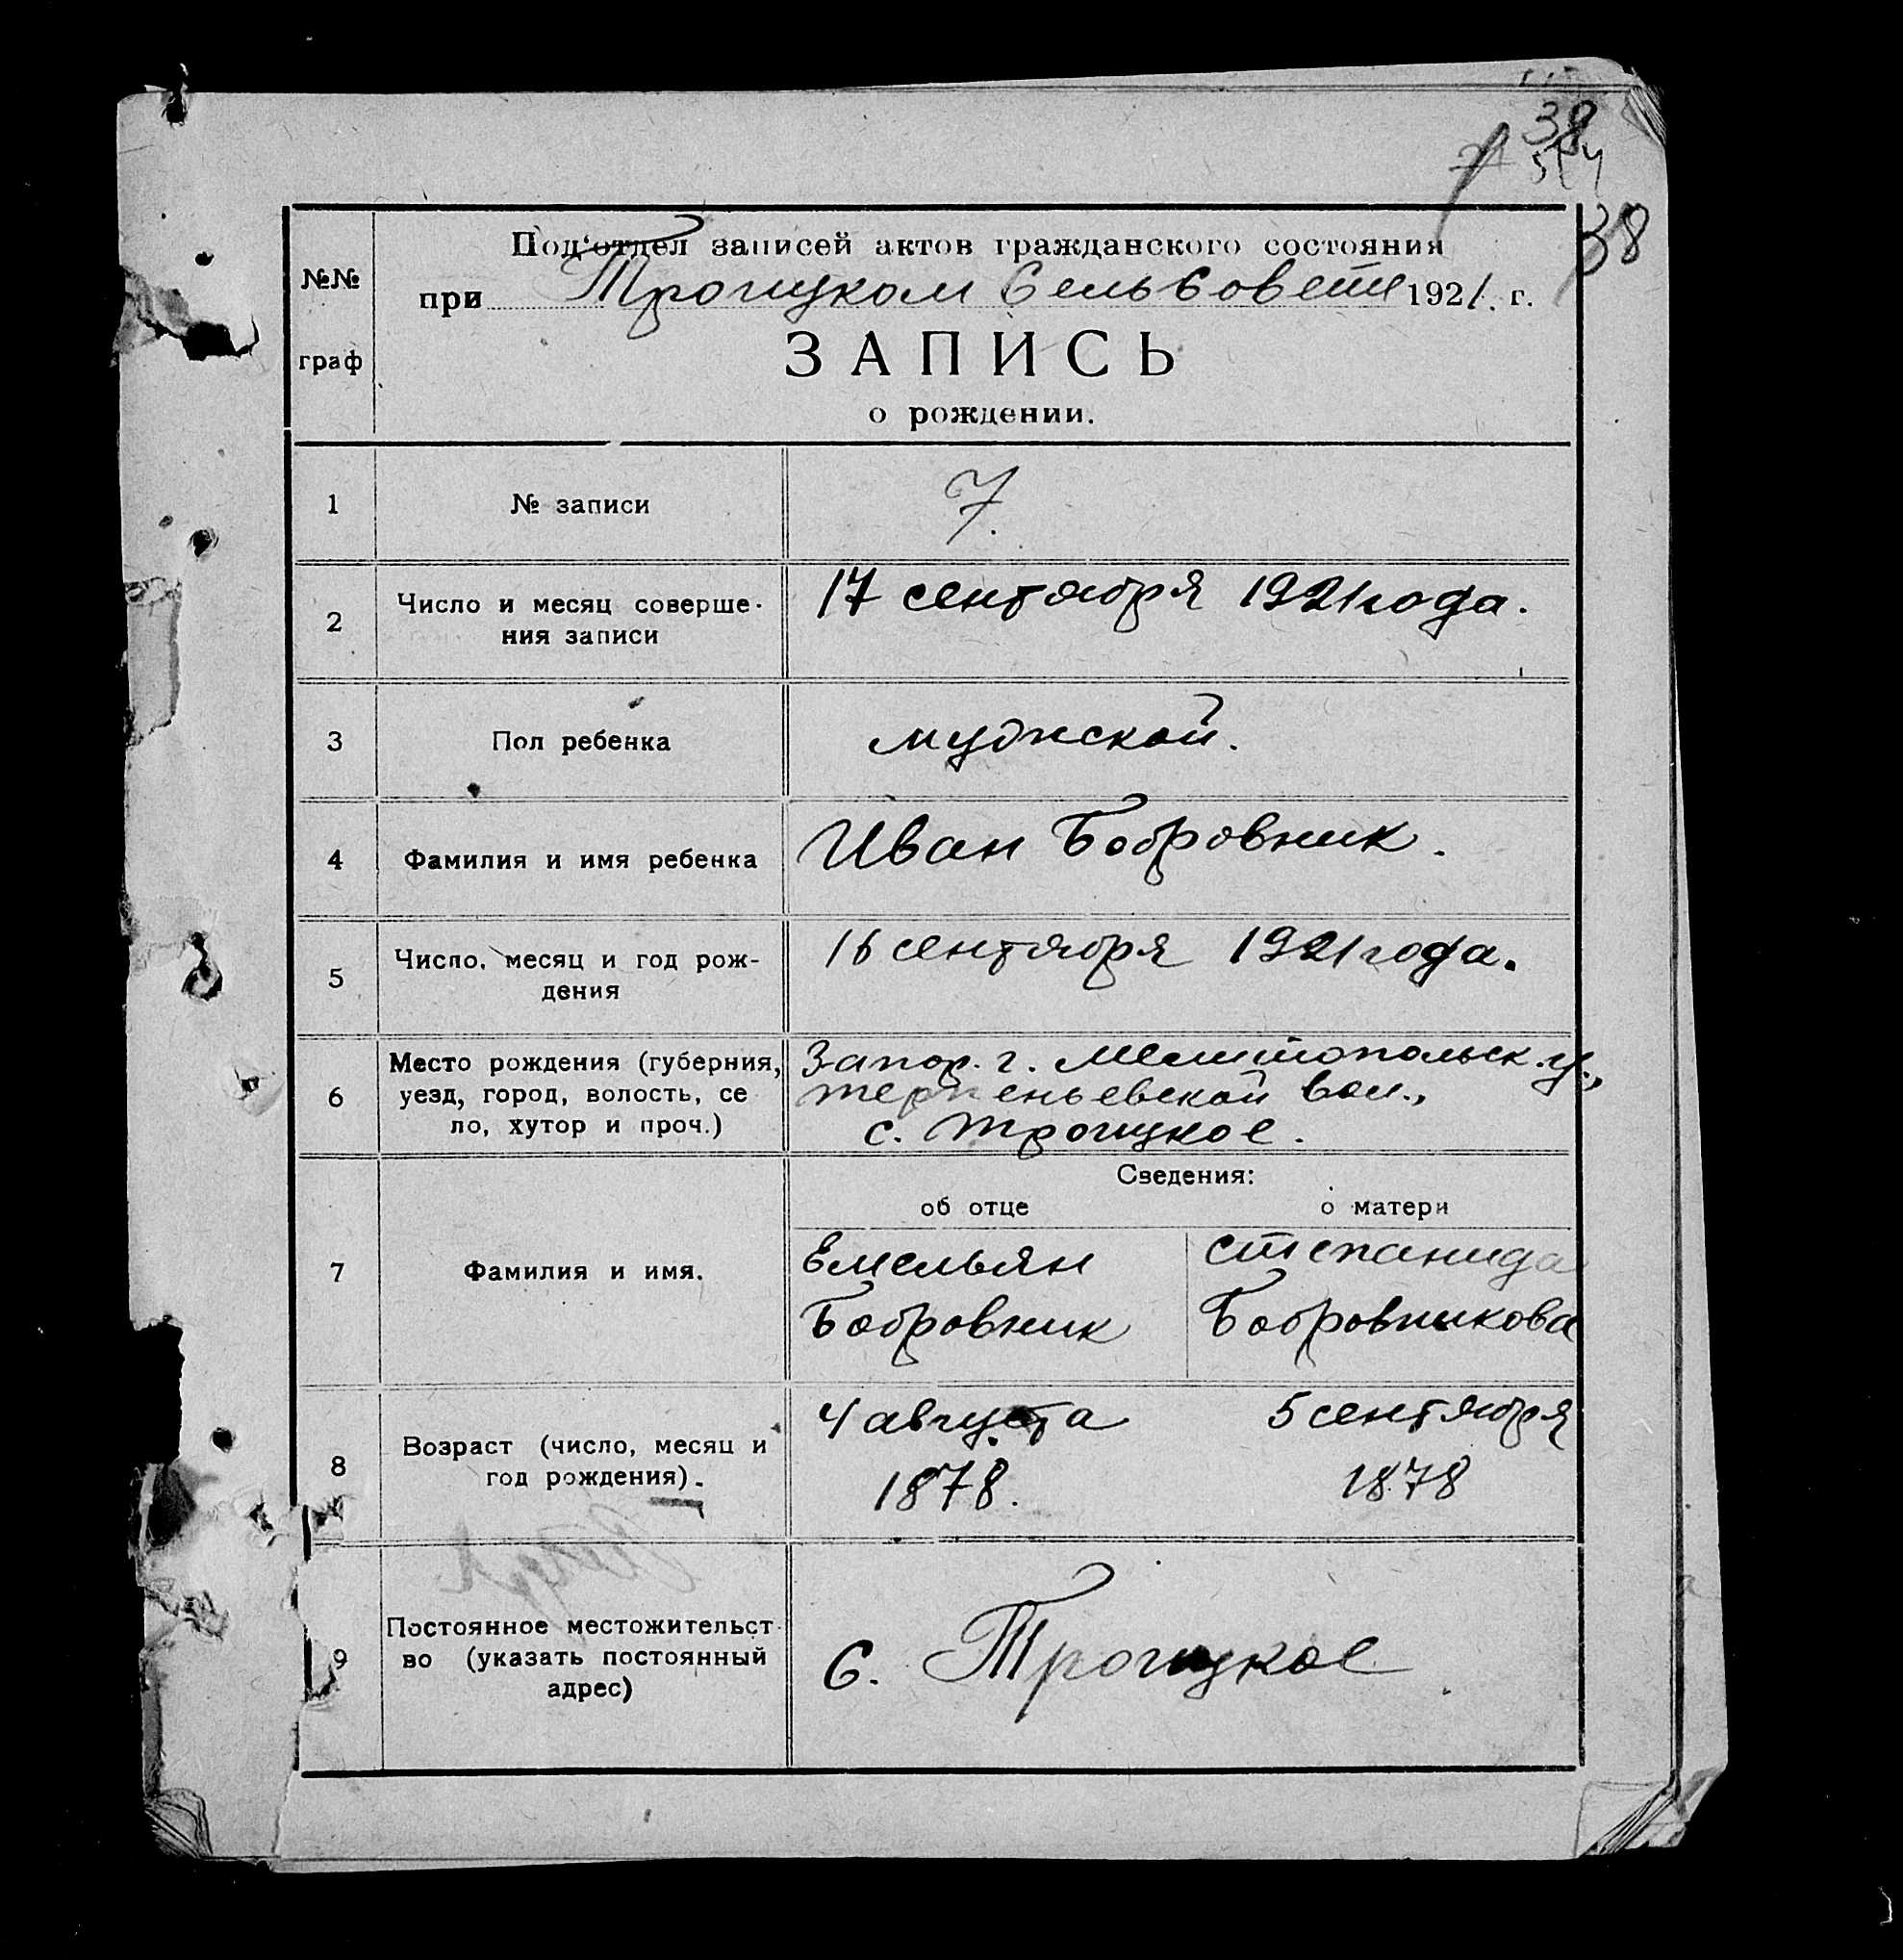 38
38
№№
граф
Под'отдел записей актов гражданского состояния
при Троицком Сельсовете 1921. г.
ЗАПИСЬ
о рождении.
1 № записи 7.
2 Число и месяц соверше-
ния записи
17 сентября 1921 года.
3 Пол ребенка мужской.
4 Фамилия и имя ребенка Иван Бобровник.
5 Число, месяц и год рож-
дения
16 сентября 1921 года.
6 Место рождения (губерния,
уезд, город, волость, се
ло, хутор и проч.)
Запор. г. Мелитопольск. у.,
терпеньевской вол.,
с. Троицкое.
Сведения:
об отце о матери
7 Фамилия и имя.
Емельян
Бобровник
Степанида
Бобровникова
8 Возраст (число, месяц и
год рождения).
4 августа
1878.
5 сентября
1878
9 Постоянное местожительст-
во (указать постоянный
адрес)
С. Троицкое